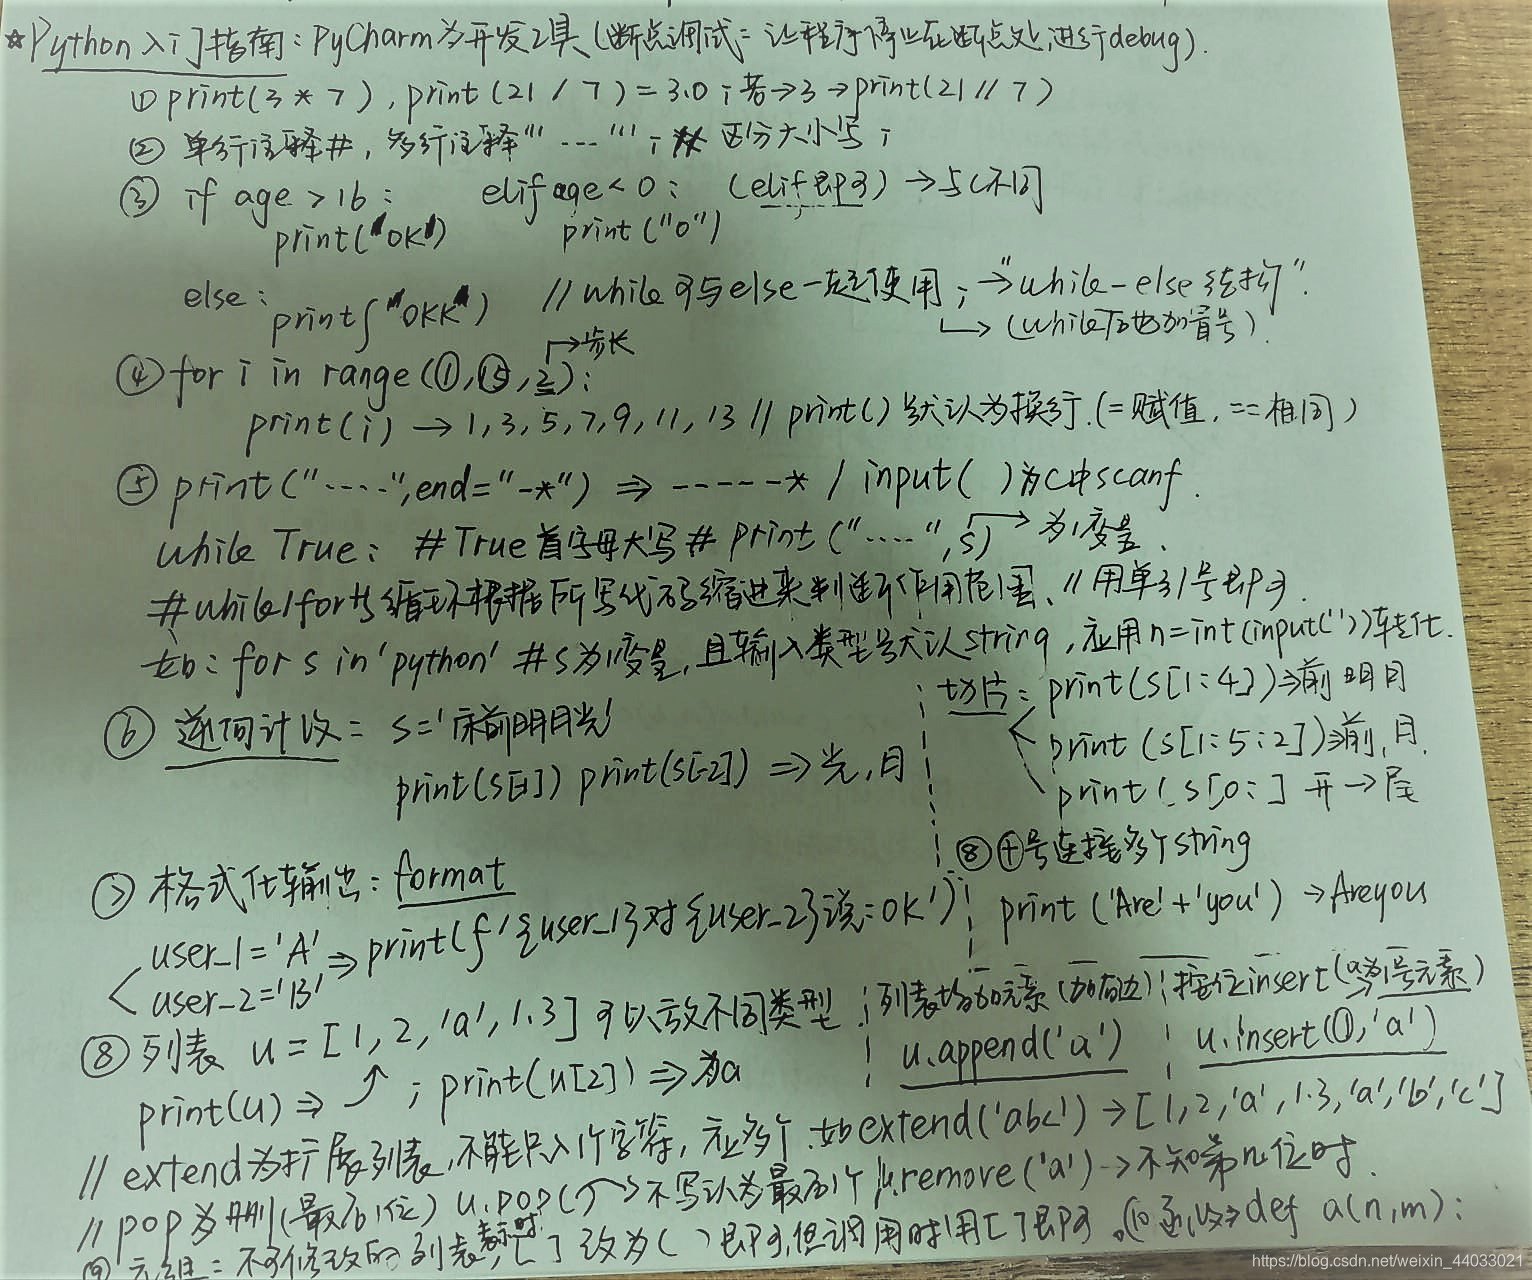 ☆Python入门指南：PyCharm为开发工具(断点调试=让程序停止在断点处,进行debug).
① print(3*7), print(21/7)=3.0；若→3→print(21//7)
② 单行注释#, 多行注释''' ---- '''；区分大小写；
③ if age>16： elif age<0： (elif即可)→与C不同
print("OK") print("0")
else： print("OKK") //while可与else一起使用；→"while-else结构".
(while后也加冒号).
→步长
④ for i in range(1,15,2)：
print(i)→1,3,5,7,9,11,13 //print()默认为换行.(=赋值,==相同)
⑤ print("-----",end="-*")⇒------* / input( )为C中scanf.
while True： #True首字母大写# print("-----",s)→为1变量.
#while/for与循环根据所写代码缩进来判断作用范围、//用单引号即可.
如：for s in 'python' #s为1变量,且输入类型默认string,应用n=int(input(''))转化.
⑥ 逆向计数= s='床前明月光'
print(s[-1]) print(s[-2])⇒光,月
切片= print(s[1:4])⇒前明月
print(s[1:5:2])⇒前,月.
print(s[0:] 开→尾
⑦ 格式化输出：format
user_1='A'
user_2='B'⇒print(f'{user_1}对{user_2}说：OK')
⑧ +号连接多个string
print('Are'+'you')→Areyou
⑧ 列表 u=[1,2,'a',1.3]可以放不同类型.
print(u)⇒ ；print(u[2])⇒为a
列表增加元素(加右边)
u.append('a')
按位insert(a为1号元素)
u.insert(1,'a')
//extend为扩展列表,不能只入1个字符,应多个.如extend('abc')→[1,2,'a',1.3,'a','b','c']
//pop为删(最后1位) u.pop( →不写认为最后1个 u.remove('a')→不知第n位时.
⑨ 元组：不可修改的列表,表示时[ ]改为( )即可,但调用时用[ ]即可.⑩函数⇒def a(n,m)：
https://blog.csdn.net/weixin_44033021